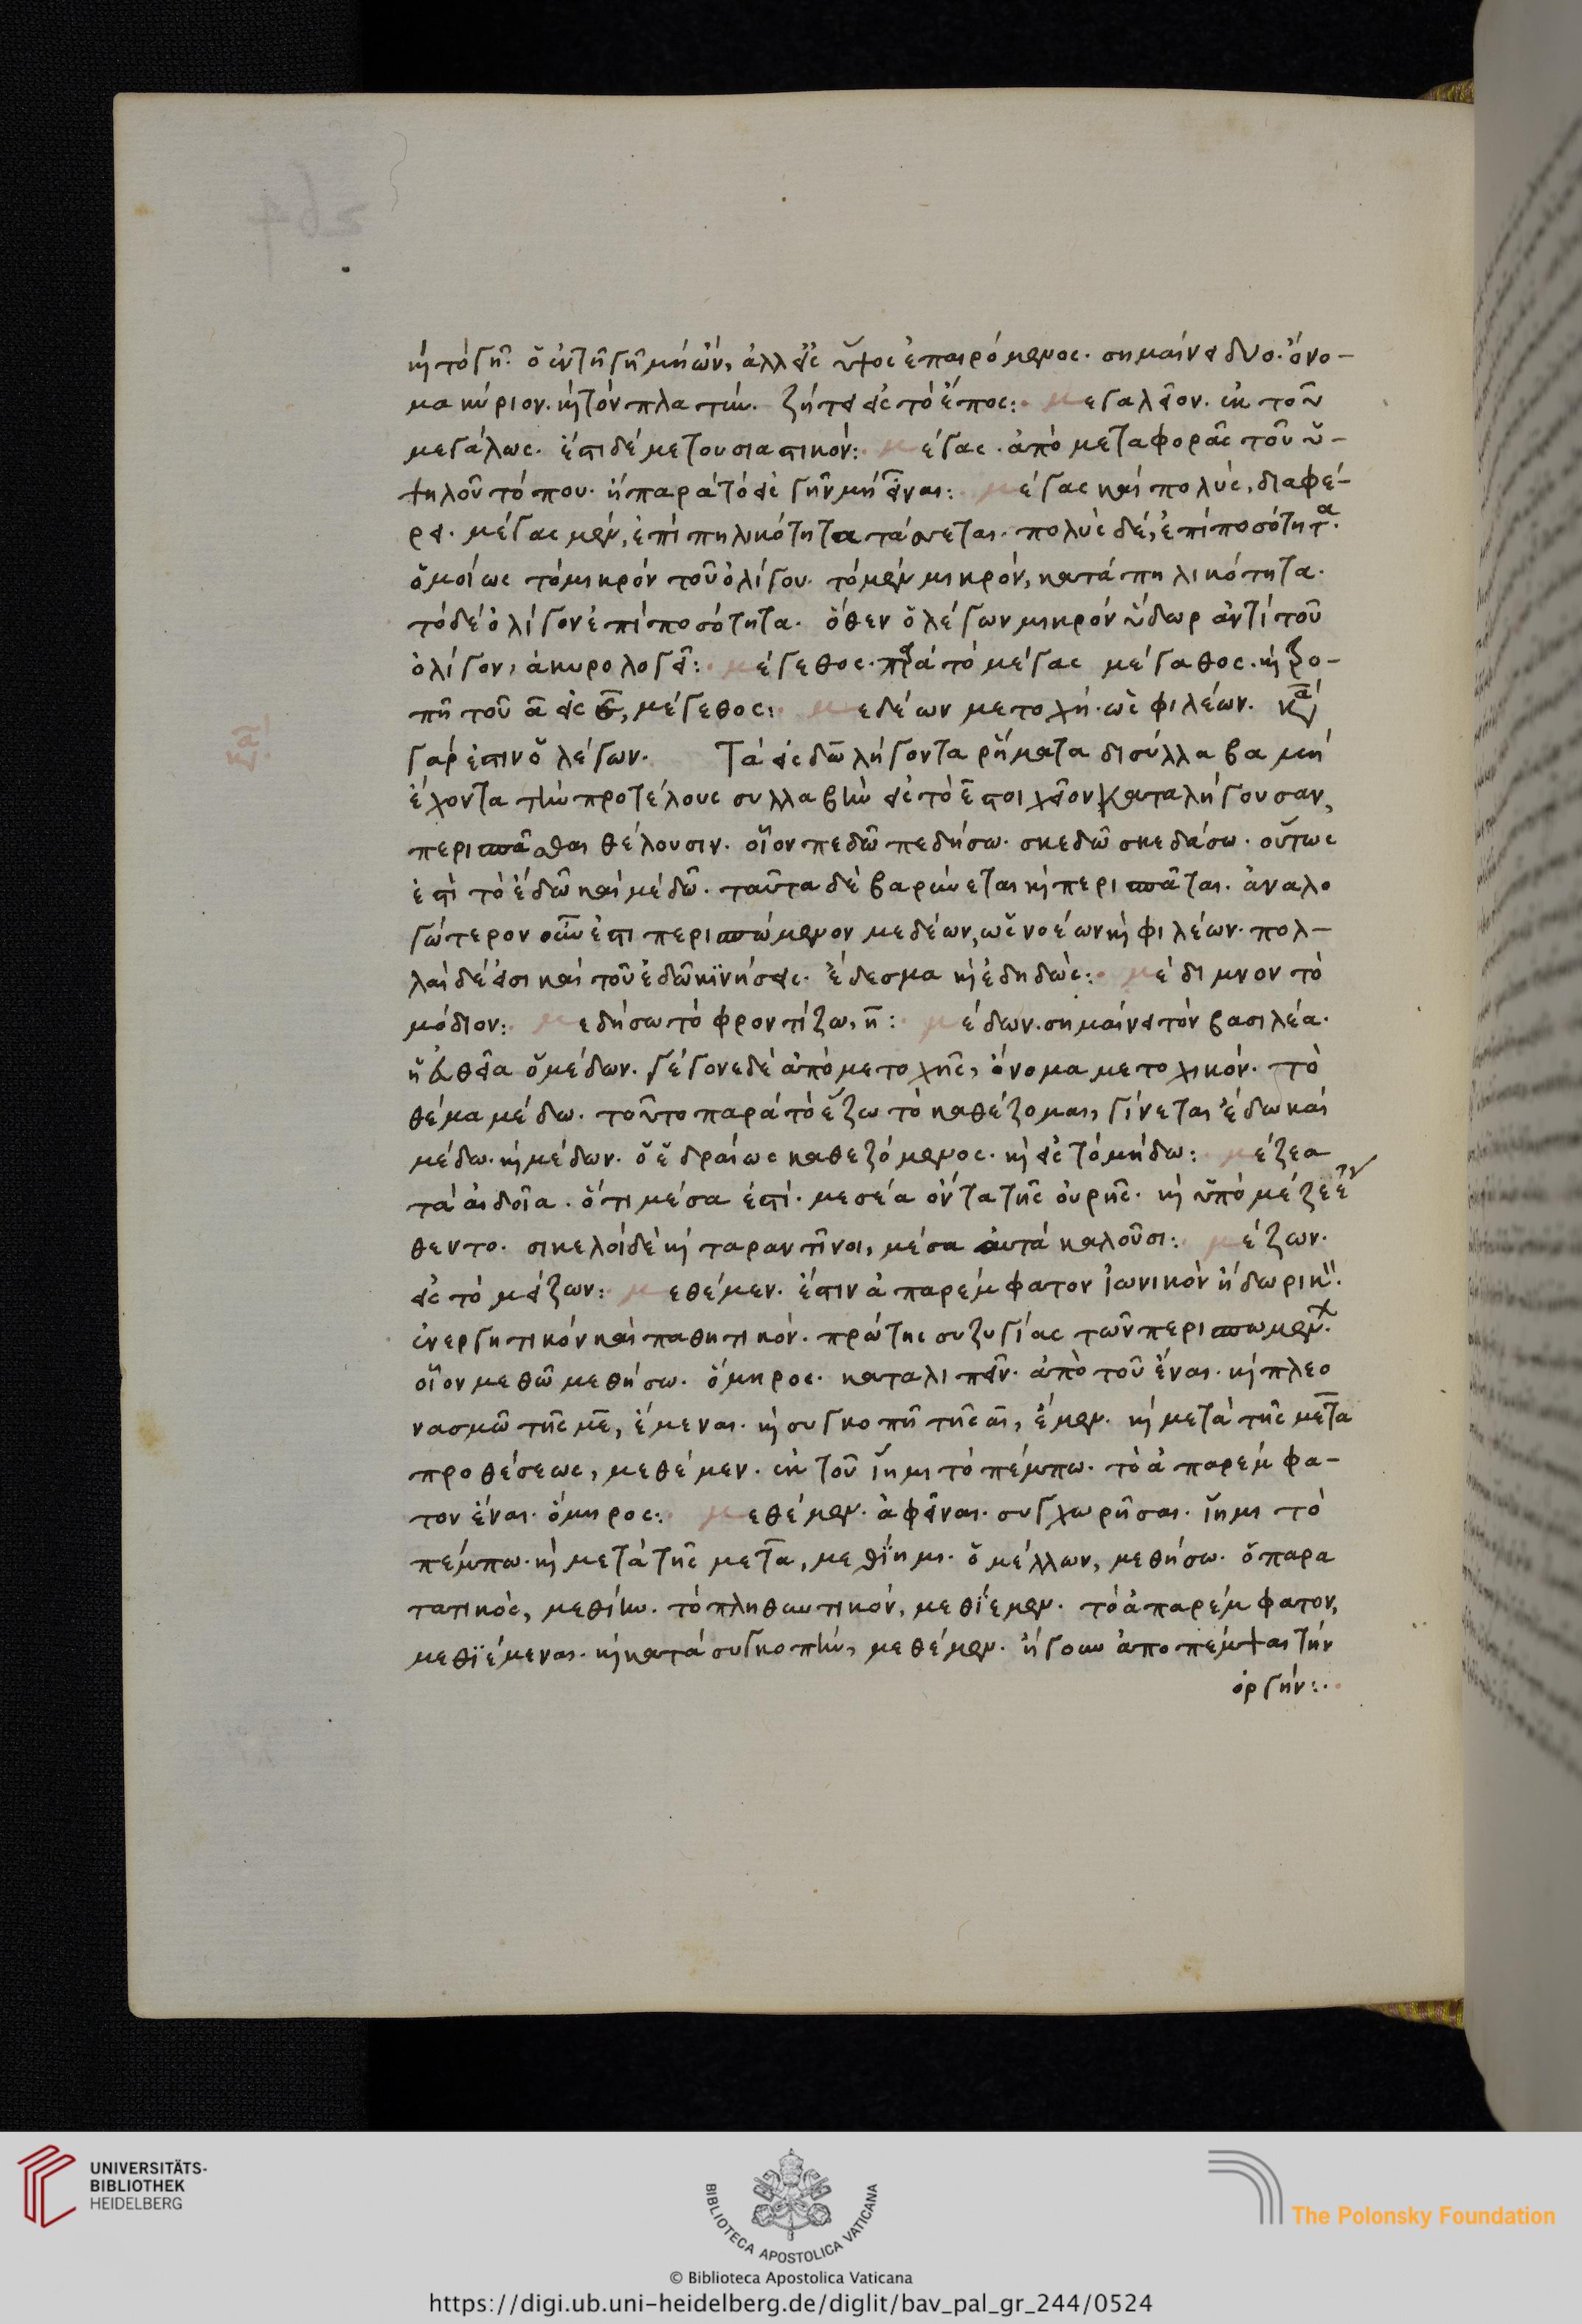 κὴ τὸ γῆ. ὁ ἐν τῆ γῆ μὴ ὢν, ἀλλ εἰς ὕψος ἐπαιρόμενος. σημαίνει δύο. ὄνο-
μα κύριον. κὴ τὸν πλατύν. ζήτει εἰς τὸ ἔπος: μεγαλεῖον. ἐκ τοῦ
μεγάλως. ἔστι δὲ μετουσιαστικόν: μέγας. ἀπὸ μεταφορᾶς τοῦ ὑ-
ψηλοῦ τόπου. ἢ παρὰ τὸ εἰς γῆν μὴ εἶναι: μέγας καὶ πολὺς, διαφέ-
ρει. μέγας μὲν, ἐπὶ πηλικότητα τάσσεται. πολὺς δὲ, ἐπὶ ποσότητα.
ὁμοίως τὸ μικρὸν τοῦ ὀλίγου. τὸ μὲν μικρὸν, κατὰ πηλικότητα.
τὸ δὲ ὀλίγον ἐπὶ ποσότητα. ὅθεν ὁ λέγων μικρὸν ὕδωρ ἀντὶ τοῦ
ὀλίγον, ἀκυρολογεῖ: μέγεθος. παρὰ τὸ μέγας μέγαθος. κὴ τρο-
πῆ τοῦ α εἰς ε, μέγεθος: μεδέων μετοχή. ὡς φιλέων. κα
γάρ ἐστιν ὁ λέγων. Τὰ εἰς δω λήγοντα ῥήματα δισύλλαβα μὴ
ἔχοντα τὴν προτέλους συλλαβὴν εἰς τὸ ε στοιχεῖον καταλήγουσαν,
περισπᾶσθαι θέλουσιν. οἷον πεδῶ πεδήσω. σκεδῶ σκεδάσω. οὕτως
ἐστὶ τὸ ἐδῶ καὶ μέδῶ. ταῦτα δὲ βαρύνεται κὴ περισπᾶται. ἀναλο
γώτερον οὖν ἐστι περισπώμενον μεδέων, ὡς νοέων κὴ φιλέων. πολ-
λαὶ δέ εἰσι καὶ τοῦ ἐδῶ κϊνήσεις. ἔδεσμα κὴ ἐδηδώς: μέδιμνον τὸ
μόδιον: μεδήσω τὸ φροντίζω, η: μέδων. σημαίνει τὸν βασιλέα.
ὁ μέδων. γέγονε δὲ ἀπὸ μετοχῆς, ὄνομα μετοχικόν. τὸ
θέμα μέδω. τοῦτο παρὰ τὸ ἕζω τὸ καθέζομαι, γίνεται ἕδω καὶ
μέδω. κὴ μέδων. ὁ ἑδραίως καθεζόμενος. κὴ εἰς τὸ μήδω: μέζεα
τὰ αἰδοῖα. ὅτι μέσα ἐστί. μεσέα ὄντα τῆς οὐρῆς. κὴ ὑπὸ μέζε ἔν
θεντο. σικελοὶ δὲ κὴ ταραντῖνοι, μέσα αὐτὰ καλοῦσι: μέζων.
εἰς τὸ μείζων: μεθέμεν. ἔστιν ἀπαρέμφατον ἰωνικὸν ἢ δωρικὸν.
ἐνεργητικὸν καὶ παθητικόν. πρώτης συζυγίας τῶν περισπωμένων.
οἷον μεθῶ μεθήσω. ὅμηρος. καταλιπεῖν. ἀπὸ τοῦ ἕναι. κὴ πλεο
νασμῶ τῆς με, ἕμεναι. κὴ συγκοπῆ τῆς αι, ἕμεν. κὴ μετὰ τῆς μετα
προθέσεως, μεθέμεν. ἐκ τοῦ ἵημι τὸ πέμπω. τὸ ἀπαρέμφα-
τον ἕναι. ὅμηρος: μεθέμεν. ἀφεῖναι. συγχωρῆσαι. ἵημι τὸ
πέμπω. κὴ μετὰ τῆς μετα, μεθΐημι. ὁ μέλλων, μεθήσω. ὁ παρα
τατικὸς, μεθίην. τὸ πληθυντικὸν, μεθΐεμεν. τὸ ἀπαρέμφατον,
μεθϊέμεναι. κὴ κατὰ συγκοπὴν, μεθέμεν. ἤγουν ἀποπέμψαι τὴν
ὀργήν:
UNIVERSITÄTS-
BIBLIOTHEK
HEIDELBERG
BIBLIOTECA APOSTOLICA VATICANA
The Polonsky Foundation
© Biblioteca Apostolica Vaticana
https://digi.ub.uni-heidelberg.de/diglit/bav_pal_gr_244/0524